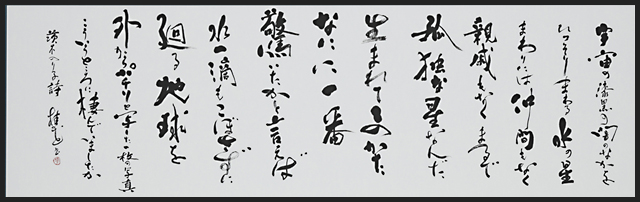 宇宙の漆黒の闇のなかを
ひっそりまわる水の星
まわりには仲間もなく
親戚もなくまるで
孤独な星なんだ
生まれてこのかた
なにに一番
驚いたかと言えば
水一滴もこぼさずに
廻る地球を
外からパチリと写した一枚の写真
こういうところに棲んでいましたか
茨木のり子詩